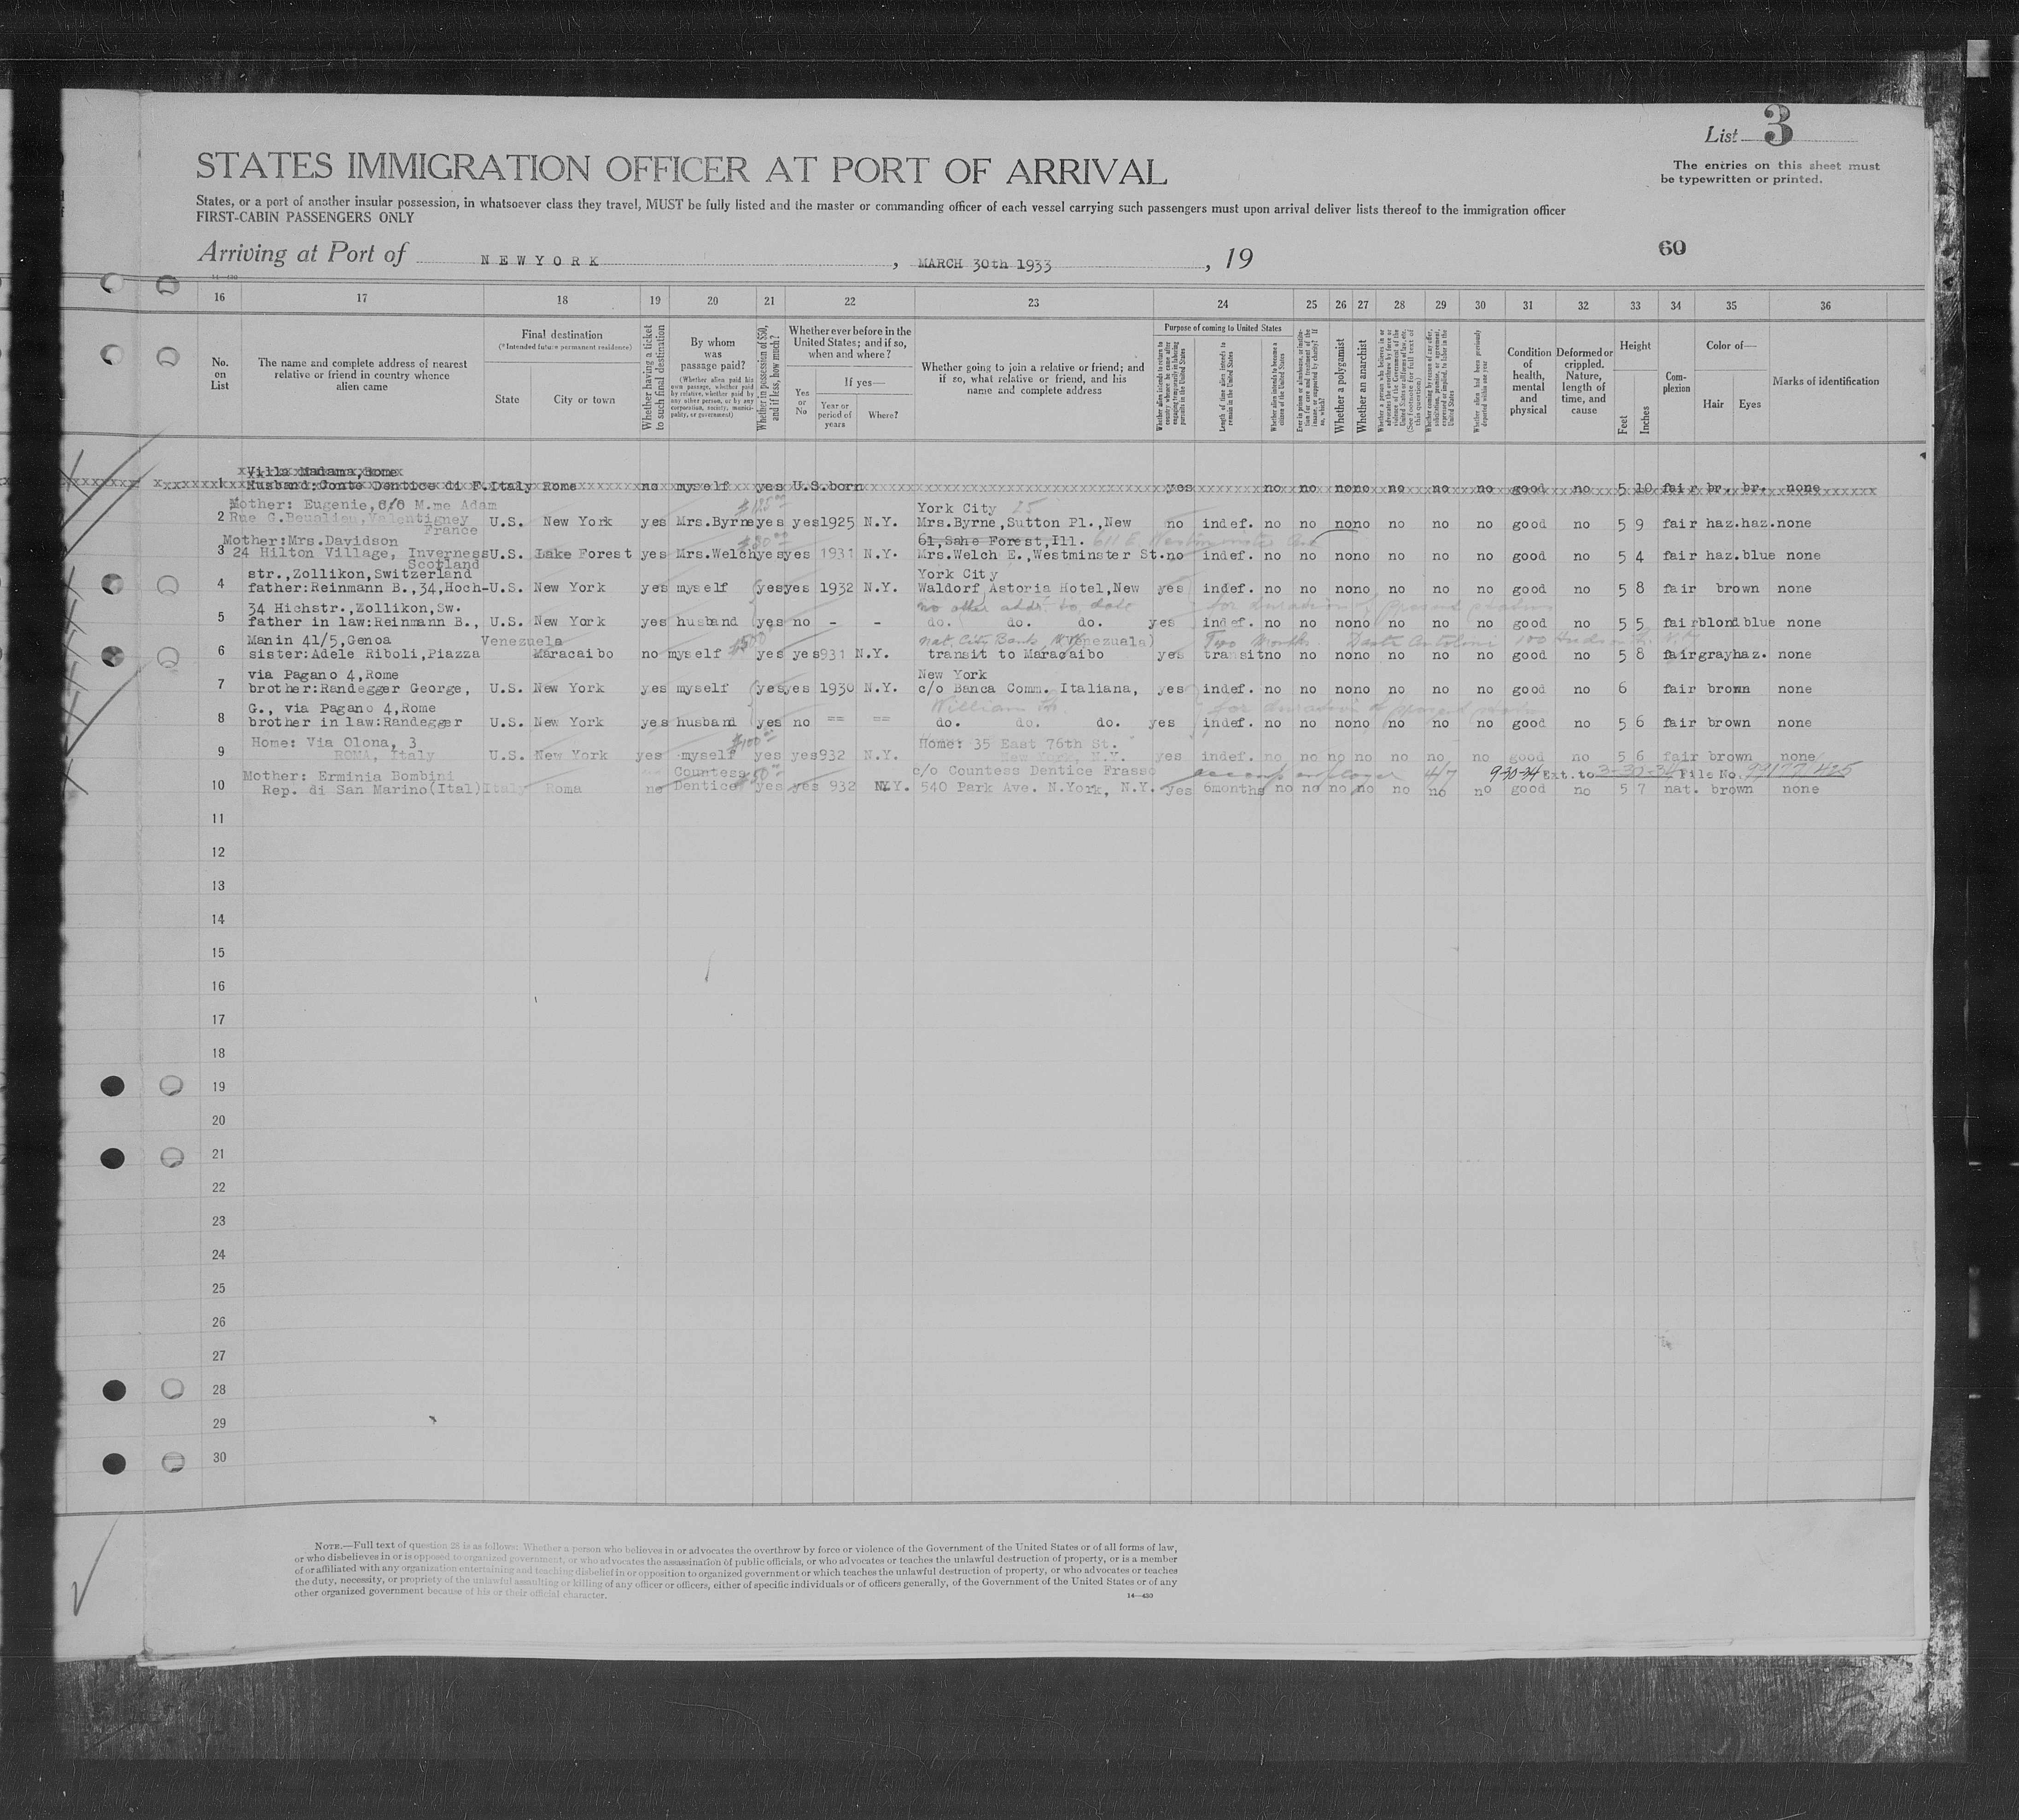 List 3
The entries on this sheet must
be typewritten or printed.
STATES IMMIGRATION OFFICER AT PORT OF ARRIVAL
States, or a port of another insular possession, in whatsoever class they travel, MUST be fully listed and the master or commanding officer of each vessel carrying such passengers must upon arrival deliver lists thereof to the immigration officer
FIRST-CABIN PASSENGERS ONLY
Arriving at Port of NEW YORK, MARCH 30th 1933, 19
60
14—430
16 17 18 19 20 21 22 23 24 25 26 27 28 29 30 31 32 33 34 35 36
No. on List
The name and complete address of nearest relative or friend in country whence alien came
Final destination
(*Intended future permanent residence)
State
City or town
Whether having a ticket to such final destination
By whom was passage paid?
(Whether alien paid his own passage, whether paid by relative, whether paid by any other person, or by any corporation, society, municipality, or government)
Whether in possession of $50, and if less, how much?
Whether ever before in the United States; and if so, when and where?
Yes or No
If yes—
Year or period of years
Where?
Whether going to join a relative or friend; and if so, what relative or friend, and his name and complete address
Purpose of coming to United States
Whether alien intends to return to country whence he came after engaging temporarily in laboring pursuits in the United States
Length of time alien intends to remain in the United States
Whether alien intends to become a citizen of the United States
Whether a polygamist
Whether an anarchist
Whether alien had been previously deported within one year
Condition of health, mental and physical
Deformed or crippled. Nature, length of time, and cause
Height
Feet
Inches
Complexion
Color of—
Hair
Eyes
Marks of identification
Villa Madama, Rome
1 Husband:Conte Dentice di F. Italy Rome no myself yes U.S.born yes no no no no no no no good no 5 10 fair br. br. none
Mother: Eugenie, c/o M.me Adam $125 York City
2 Rue G.Beualieu, Valentigney U.S. New York yes Mrs.Byrne yes yes 1925 N.Y. Mrs.Byrne,Sutton Pl.,New no indef. no no no no no no no good no 5 9 fair haz. haz. none
France
Mother:Mrs.Davidson $30 61, Sahe Forest,Ill. 611 E. Westminster
3 24 Hilton Village, Inverness U.S. Lake Forest yes Mrs.Welch yes yes 1931 N.Y. Mrs.Welch E.,Westminster St. no indef. no no no no no no no good no 5 4 fair haz. blue none
Scotland
str.,Zollikon,Switzerland York City
4 father:Reinmann B.,34,Hoch- U.S. New York yes myself yes yes 1932 N.Y. Waldorf Astoria Hotel,New yes indef. no no no no no no no good no 5 8 fair brown none
34 Hichstr.,Zollikon,Sw. no other addr. to date for duration of present status
5 father in law:Reinmann B., U.S. New York yes husband yes no - - do. do. do. yes indef. no no no no no no no good no 5 5 fair blond blue none
Manin 41/5,Genoa Venezuela $50 Nat. City Bank, N.Y. Venezuala) Two Months
6 sister:Adele Riboli,Piazza Maracaibo no myself yes yes 931 N.Y. transit to Maracaibo yes transit no no no no no no no good no 5 8 fair gray haz. none
via Pagano 4,Rome New York
7 brother:Randegger George, U.S. New York yes myself yes yes 1930 N.Y. c/o Banca Comm. Italiana, yes indef. no no no no no no no good no 6 fair brown none
G., via Pagano 4,Rome William St. for duration of present status
8 brother in law:Randegger U.S. New York yes husband yes no == == do. do. do. yes indef. no no no no no no no good no 5 6 fair brown none
Home: Via Olona, 3 $100 Home: 35 East 76th St.
9 ROMA, Italy U.S. New York yes myself yes yes 932 N.Y. New York, N.Y. yes indef. no no no no no no no good no 5 6 fair brown none
Mother: Erminia Bombini Countess $50 c/o Countess Dentice Frasso accomp employer 4/7 9-30-34 Ext. to 3-30-34 File No.
10 Rep. di San Marino(Ital) Italy Roma no Dentice yes yes 932 N.Y. 540 Park Ave. N.York, N.Y. yes 6months no no no no no no no good no 5 7 nat. brown none
11
12
13
14
15
16
17
18
19
20
21
22
23
24
25
26
27
28
29
30
NOTE.—Full text of question 28 is as follows: Whether a person who believes in or advocates the overthrow by force or violence of the Government of the United States or of all forms of law,
or who disbelieves in or is opposed to organized government, or who advocates the assassination of public officials, or who advocates or teaches the unlawful destruction of property, or is a member
of or affiliated with any organization entertaining and teaching disbelief in or opposition to organized government or which teaches the unlawful destruction of property, or who advocates or teaches
the duty, necessity, or propriety of the unlawful assaulting or killing of any officer or officers, either of specific individuals or of officers generally, of the Government of the United States or of any
other organized government because of his or their official character.
14—430